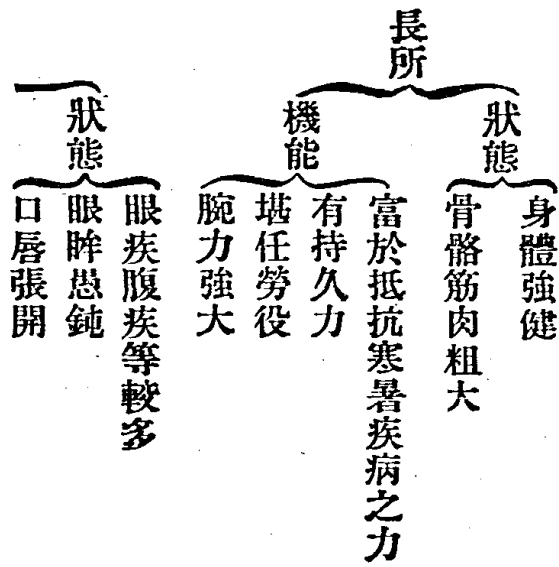 長所
狀態
身體強健
骨骼筋肉粗大
機能
富於抵抗寒暑疾病之力
有持久力
堪任勞役
腕力強大
狀態
眼疾腹疾等較多
眼眸愚鈍
口唇張開